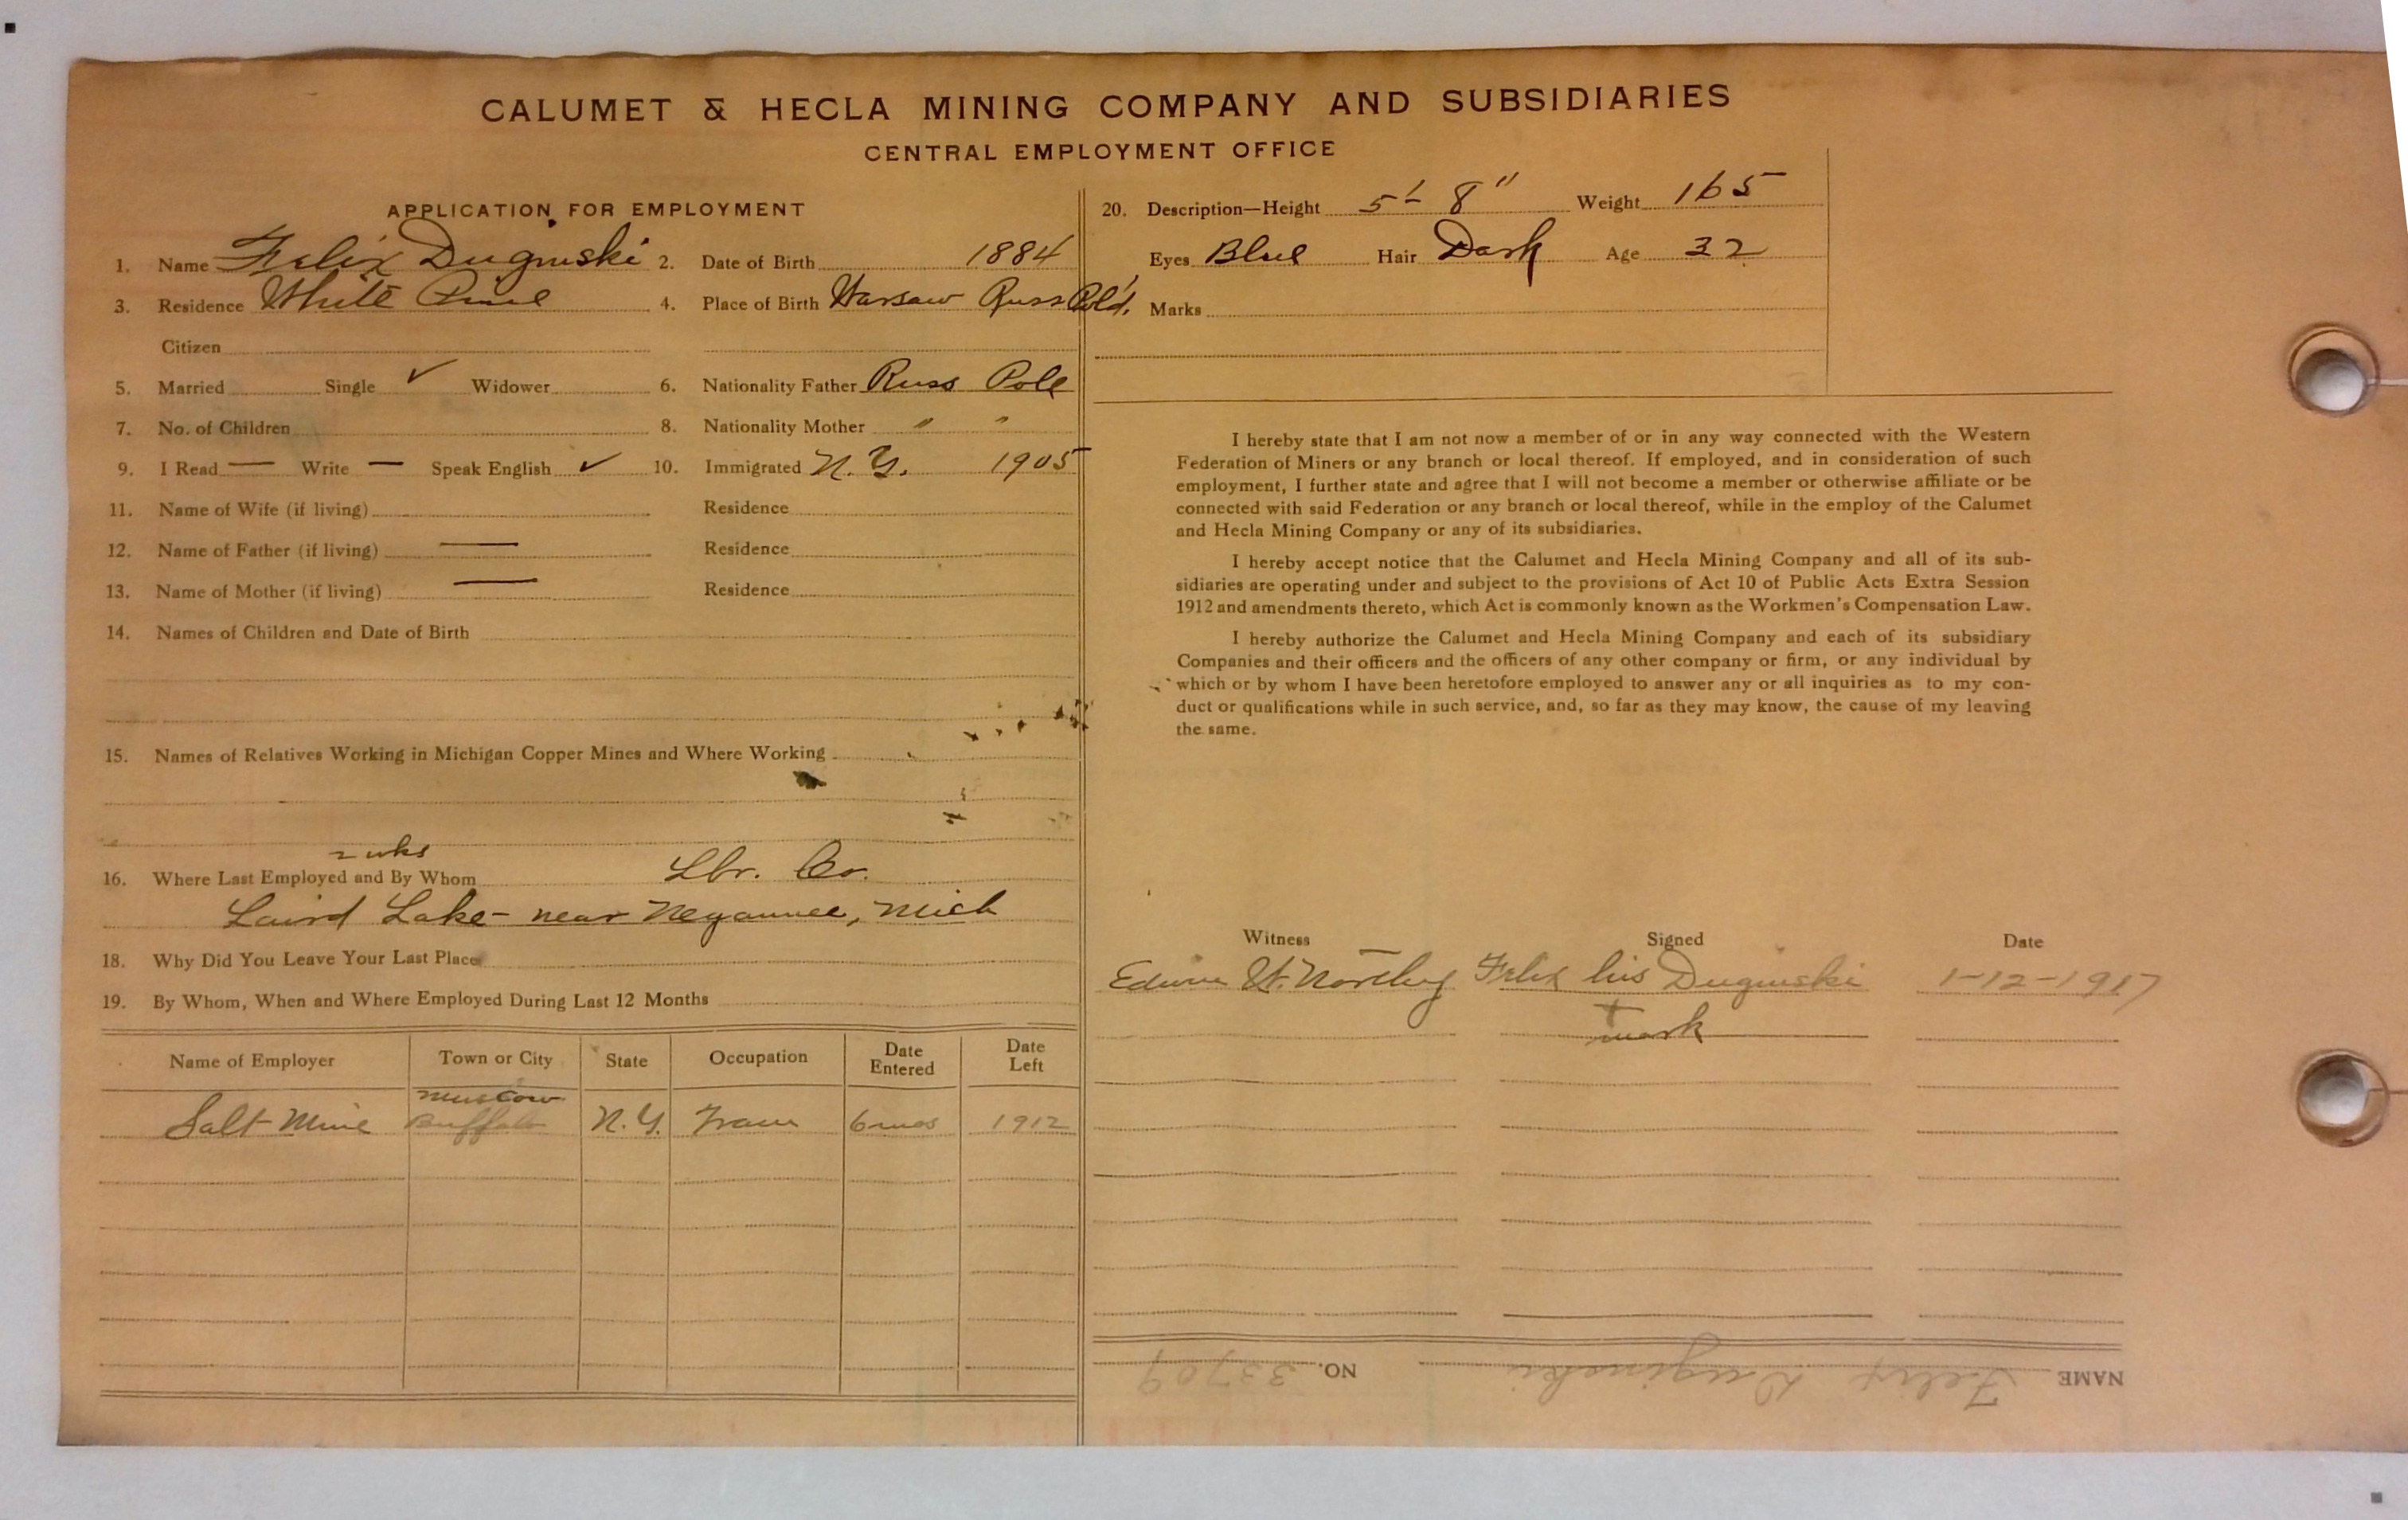 CALUMET & HECLA MINING COMPANY AND SUBSIDIARIES
CENTRAL EMPLOYMENT OFFICE
APPLICATION FOR EMPLOYMENT
1. Name Felix Duginski 2. Date of Birth 1884
3. Residence White Pine 4. Place of Birth Warsaw Russ Pold.
Citizen
5. Married Single ✓ Widower 6. Nationality Father Russ Pole
7. No. of Children 8. Nationality Mother " "
9. I Read — Write — Speak English ✓ 10. Immigrated N.Y. 1905
11. Name of Wife (if living) Residence
12. Name of Father (if living) — Residence
13. Name of Mother (if living) — Residence
14. Names of Children and Date of Birth
15. Names of Relatives Working in Michigan Copper Mines and Where Working
2 wks
16. Where Last Employed and By Whom Lbr. Co.
Laird Lake - near Negaunee, Mich
18. Why Did You Leave Your Last Place
19. By Whom, When and Where Employed During Last 12 Months
Name of Employer Town or City State Occupation Date Entered Date Left
Salt Mine Buffalo N.Y. Tram 6 mos 1912
20. Description—Height 5' 8" Weight 165
Eyes Blue Hair Dark Age 32
Marks
I hereby state that I am not now a member of or in any way connected with the Western
Federation of Miners or any branch or local thereof. If employed, and in consideration of such
employment, I further state and agree that I will not become a member or otherwise affiliate or be
connected with said Federation or any branch or local thereof, while in the employ of the Calumet
and Hecla Mining Company or any of its subsidiaries.
I hereby accept notice that the Calumet and Hecla Mining Company and all of its sub-
sidiaries are operating under and subject to the provisions of Act 10 of Public Acts Extra Session
1912 and amendments thereto, which Act is commonly known as the Workmen's Compensation Law.
I hereby authorize the Calumet and Hecla Mining Company and each of its subsidiary
Companies and their officers and the officers of any other company or firm, or any individual by
which or by whom I have been heretofore employed to answer any or all inquiries as to my con-
duct or qualifications while in such service, and, so far as they may know, the cause of my leaving
the same.
Witness Signed Date
Edwin W. Northey Felix his Duginski 1-12-1917
+
mark
NAME Felix Duginski NO. 33709